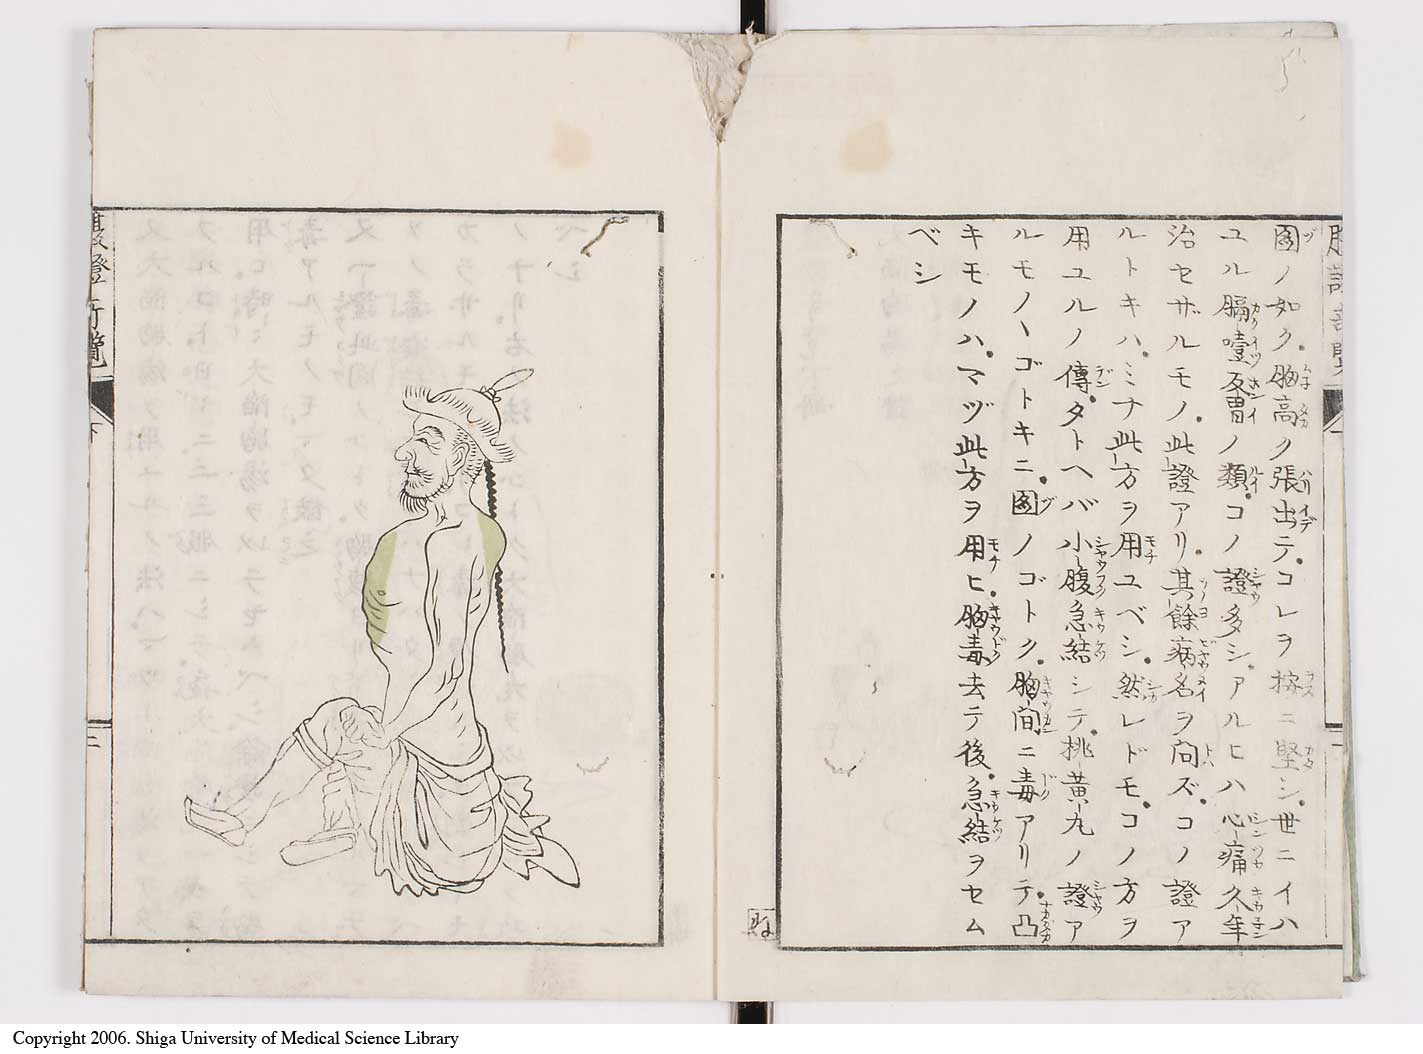 圖ノ如ク胸高ク張出テコレヲ按ニ堅シ世ニイハ
ユル膈噎翻胃ノ類コノ證多シアルヒハ心痛久年
治セザルモノ此證アリ其餘病名ヲ問ズコノ證ア
ルトキハミナ此方ヲ用ユベシ然レドモコノ方ヲ
用ユルノ傳タトヘバ小腹急結シテ桃黃丸ノ證ア
ルモノヽゴトキニ圖ノゴトク胸間ニ毒アリテ凸
キモノハマヅ此方ヲ用ヒ胸毒去テ後急結ヲセム
ベシ
Copyright 2006. Shiga University of Medical Science Library